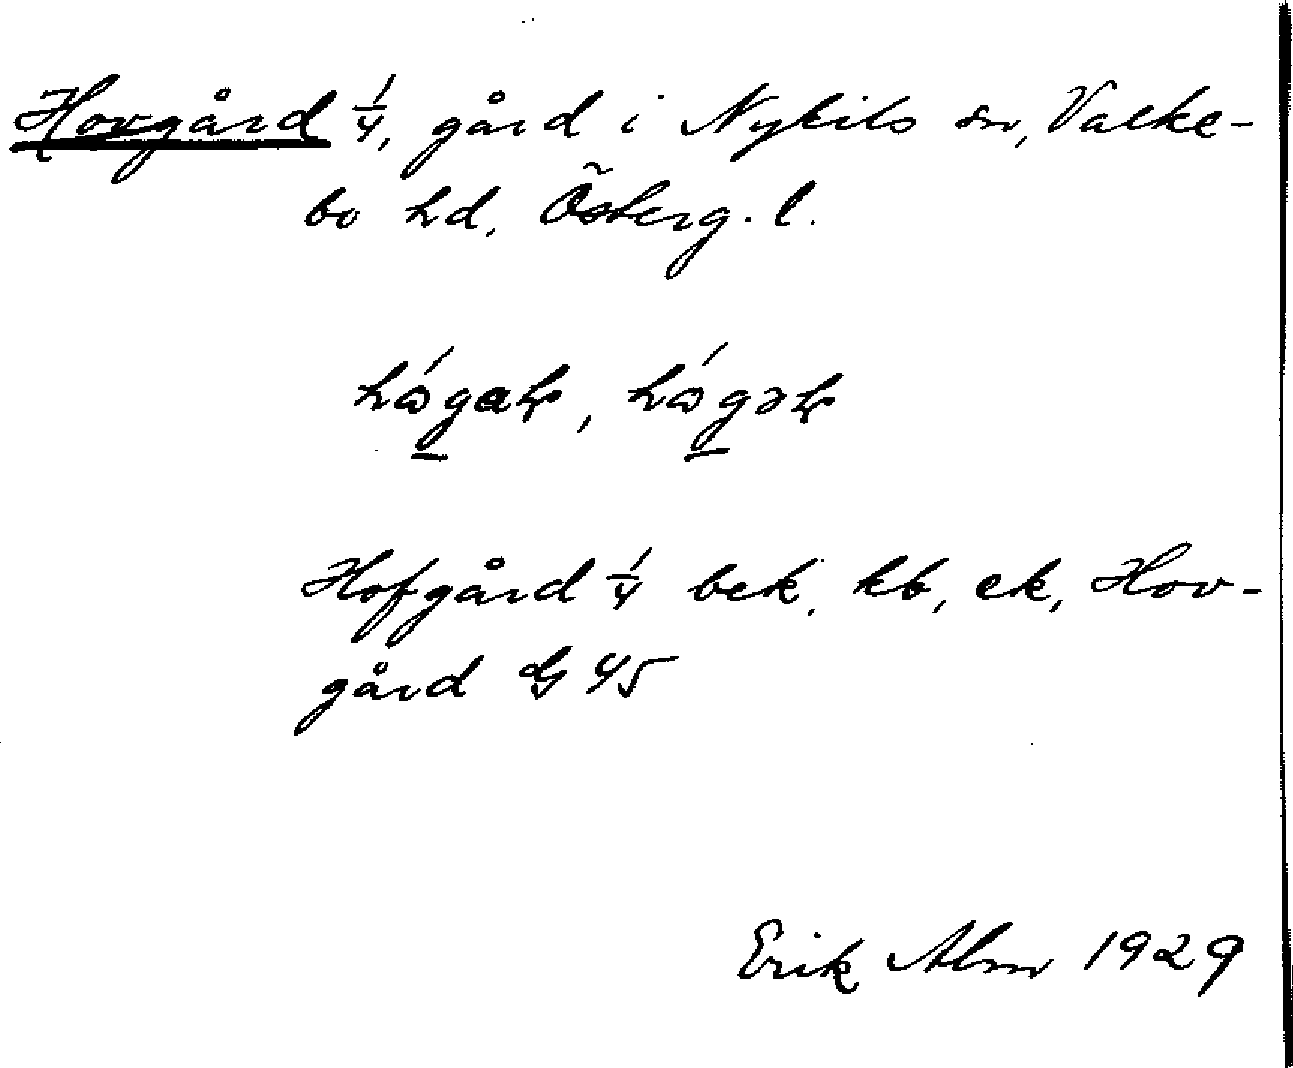 Hovgård 1/4, gård i Nykils sn, Valke-
bo hd, Österg. l.
Hofgård 1/4 bek. kb, ek, Hov-
gård G 45
Erik Alm 1929